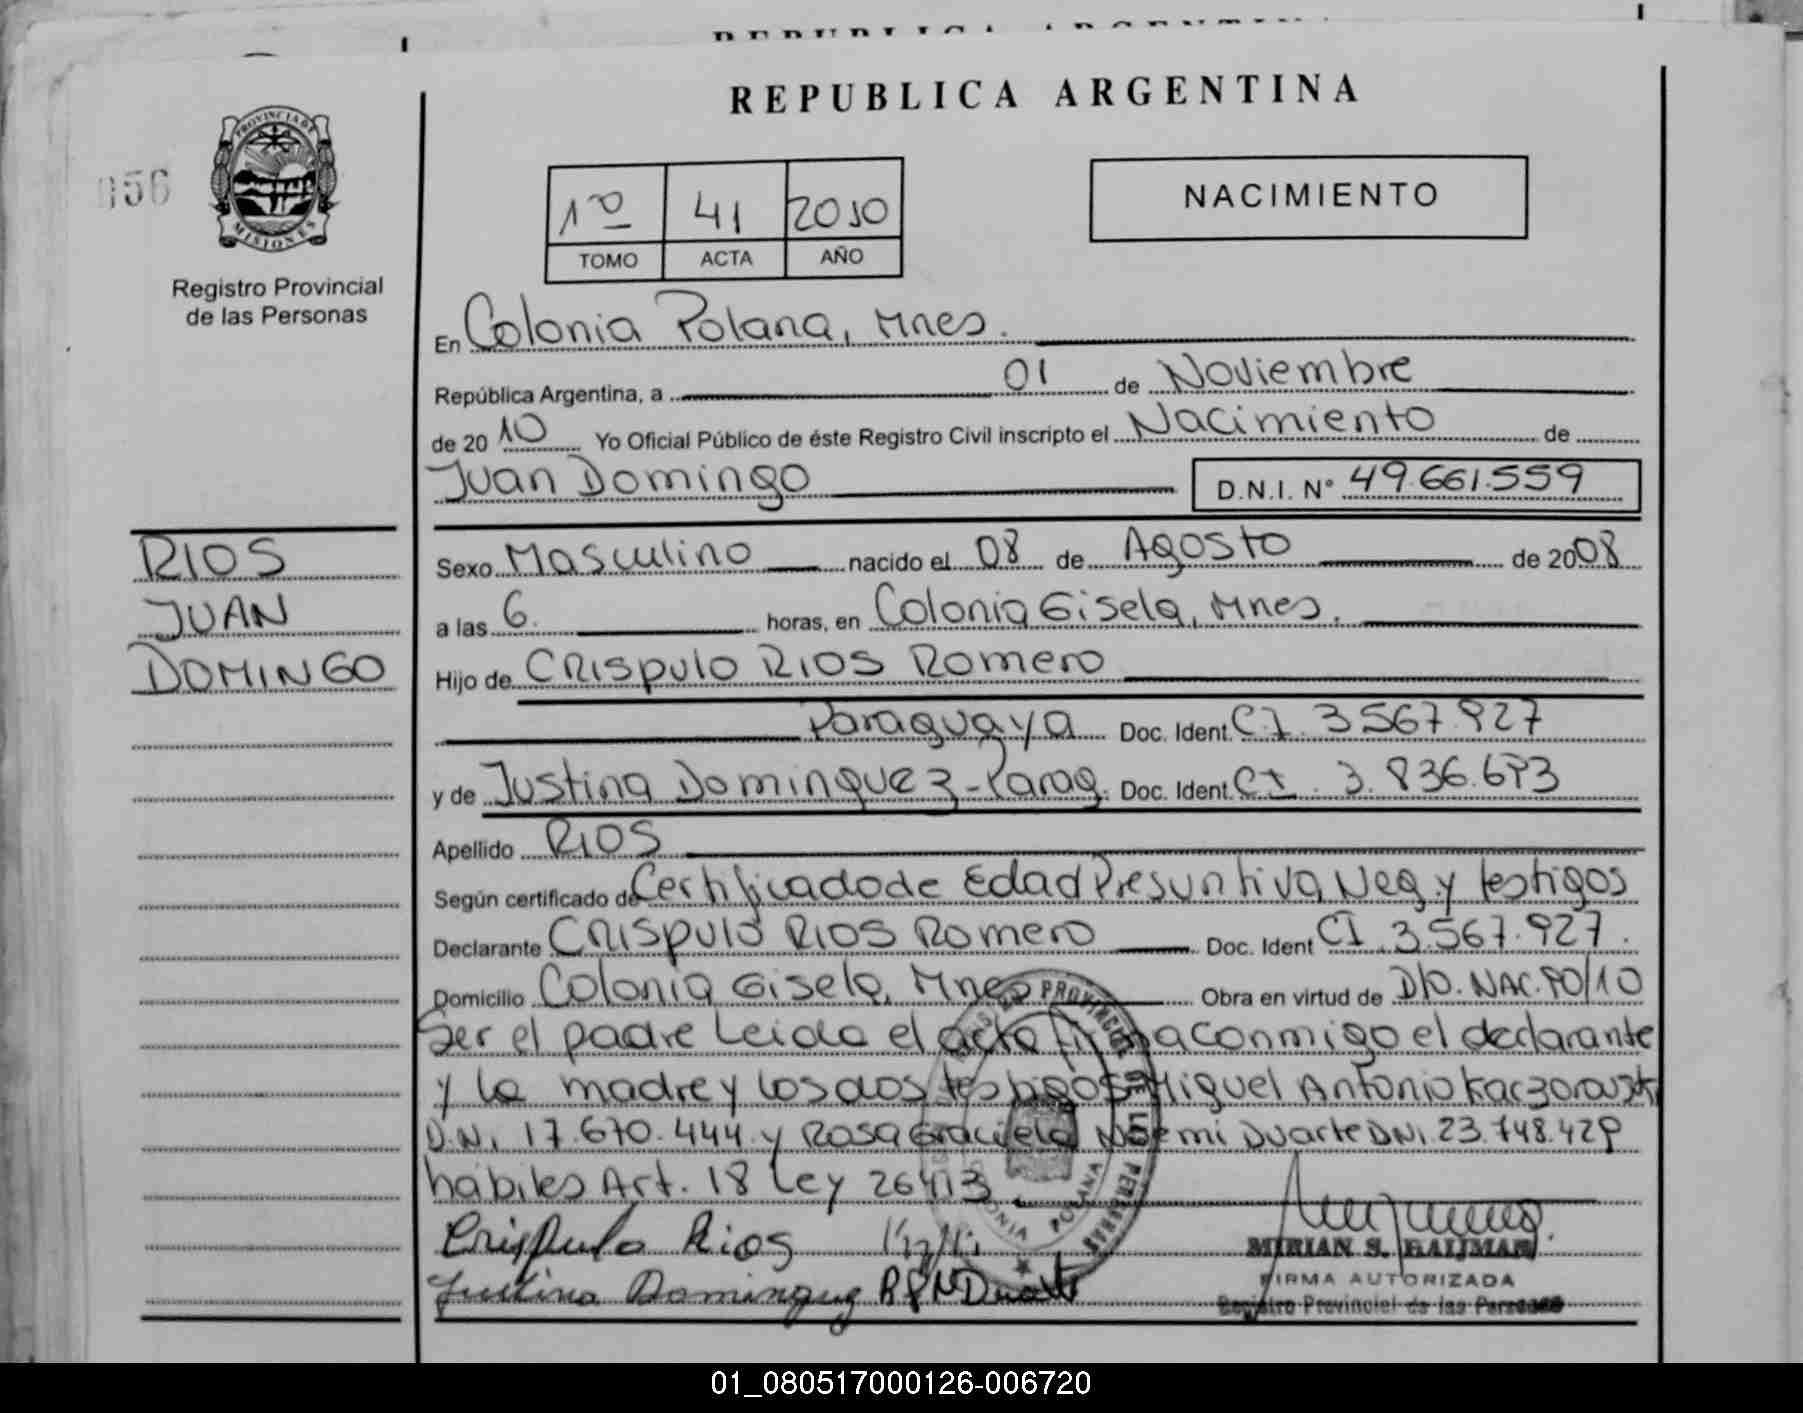 REPUBLICA ARGENTINA
PROVINCIA DE
MISIONES
056
Registro Provincial
de las Personas
1º 41 2010
TOMO ACTA AÑO
NACIMIENTO
En Colonia Polana, Mnes.
República Argentina, a 01 de Noviembre
de 2010 Yo Oficial Público de éste Registro Civil inscripto el Nacimiento de
Juan Domingo D.N.I. Nº 49.661.559
RIOS
JUAN
DOMINGO
Sexo Masculino nacido el 08 de Agosto de 2008
a las 6. horas, en Colonia Gisela, Mnes.
Hijo de CRispulo RIOS Romero
Paraguaya Doc. Ident. CI. 3567.927
y de Justina Dominguez - Parag. Doc. Ident. CI. 3.836.693
Apellido RIOS
Según certificado de Certificado de Edad Presuntiva, Neg. y testigos
Declarante CRISpulo RIOS Romero Doc. Ident CI 3.567.927.
Domicilio Colonia Gisela, Mnes Obra en virtud de D/D. NAC. 90/10
Ser el padre Leida el acta firma conmigo el declarante
y la madre y los dos testigos Miguel Antonio Kaczorowski
D.N.I. 17.670.444 y Rosa Graciela Noemi Duarte DNI. 23.748.429
habiles Art. 18 Ley 26413
Crispulo Rios
Justina Dominguez
MIRIAN S.
FIRMA AUTORIZADA
Registro Provincial de las Personas
01_080517000126-006720